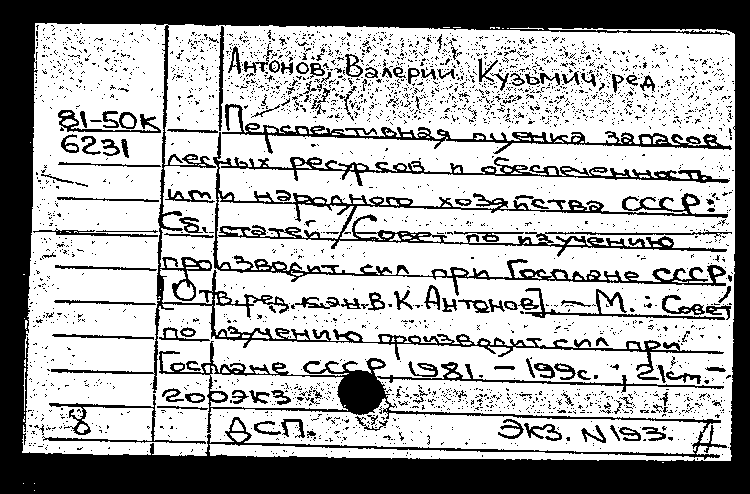 Антонов, Валерий Кузьмич, ред
81-50К
6231
Перспективная оценка запасов
лесных ресурсов и обеспеченность
ими народного хозяйства СССР:
Сб. статей / Совет по изучению
производит. сил при Госплане СССР.
[Отв. ред. к.э.н. В.К. Антонов]. – М.: Совет
по изучению производит. сил при
Госплане СССР, 1981. – 199с.; 21см. –
200экз
8 ДСП. Экз. N 193. Д